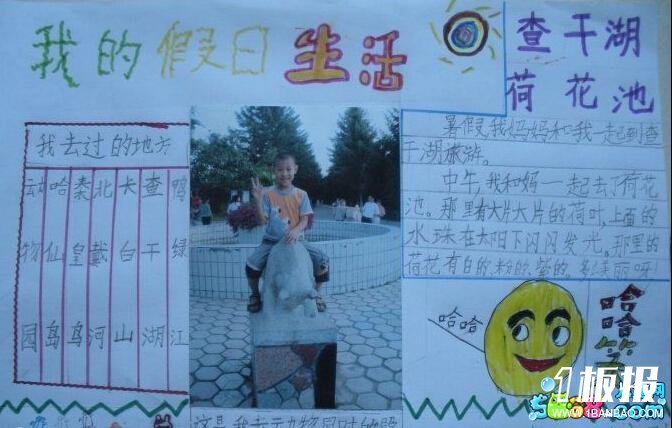 我的假日生活
查干湖
荷花池
我去过的地方
动物园
哈仙岛
秦皇岛
北戴河
长白山
查干湖
鸭绿江
暑假,我妈妈和我一起到查
干湖旅游。
中午,我和妈 一起去了荷花
池。那里有大片大片的荷叶,上面的
水珠在太阳下闪闪发光。那里的
荷花有白的、粉的、紫的。多么美丽呀!
哈哈
哈哈
这是我
1板报
WWW.1BANBAO.COM